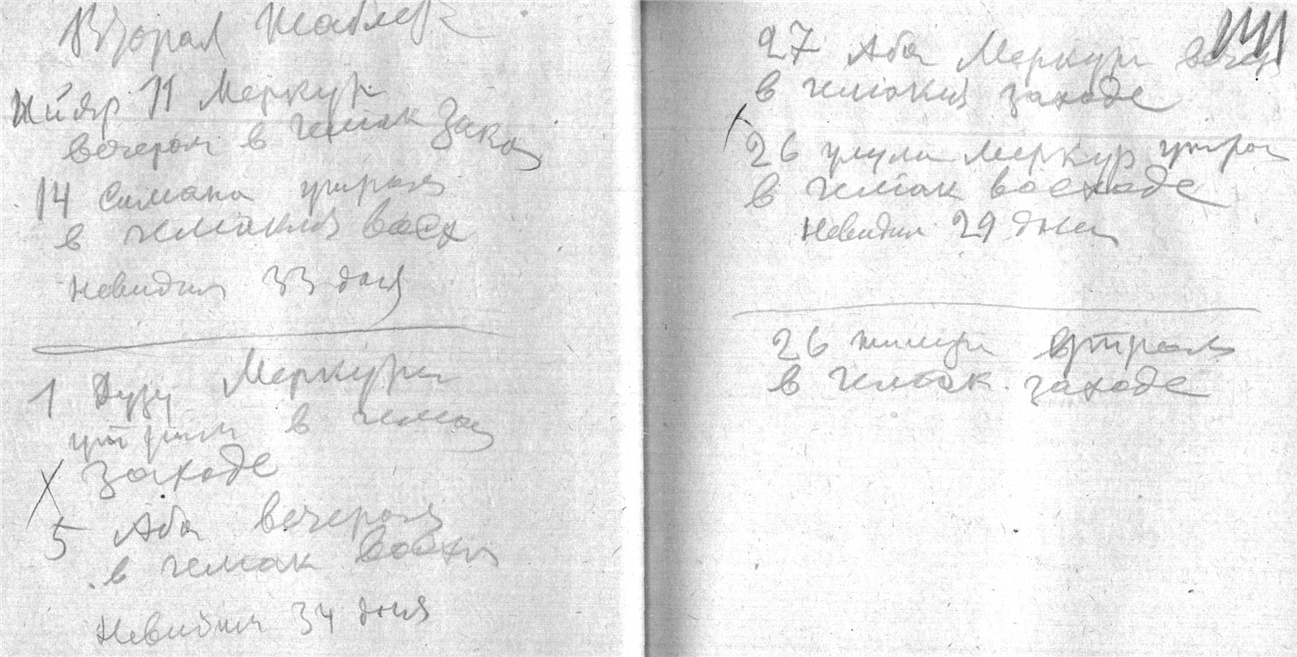 Вторая Таблет
Ийяр 11 Меркур
вечером в гелиак Захо
14 Симана утром
в гелиакия восх
Невидим 33 дня
1 Дузу Меркури
утром в гелиа
заходе
5 Аба вечером
в гелиак восхо
Невидим 34 дня
27 Аба Меркури вечер
в гелиакия заходе
26 улула Меркур утром
в гелиак восходе
Невидим 29 дней
26 тишри утром
в гелиак. заходе